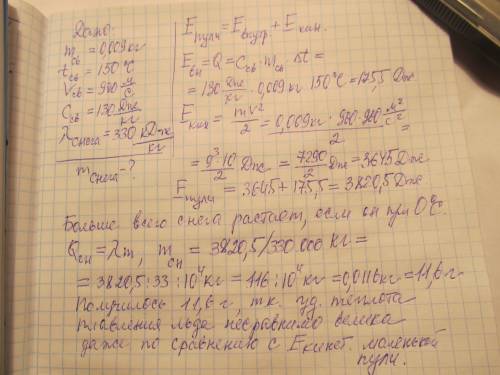 Дано
m св = 0,009 кг
t св = 150°C
V св = 900 м/с
C св = 130 Дж/кг
λ снега = 330 кДж/кг
m снега - ?
E пули = E внутр. + E кин.
E вн = Q = C св · m св · Δt =
= 130 Дж/кг · 0,009 кг · 150°C = 175,5 Дж
E кин = mV²/2 = 0,009 кг · 900 · 900 м²/с² / 2 =
= 9³·10/2 Дж = 7290/2 Дж = 3645 Дж
E пули = 3645 + 175,5 = 3820,5 Дж
Больше всего снега растает, если он при 0°C.
Q сн = λm, m сн = 3820,5/330 000 кг =
= 3820,5 : 33 : 10⁴ кг = 116 : 10⁴ кг = 0,0116 кг = 11,6 г
Получилось 11,6 г, т.к. уд. теплота
плавления льда несравнимо велика
даже по сравнению с E кинет. маленькой
пули.